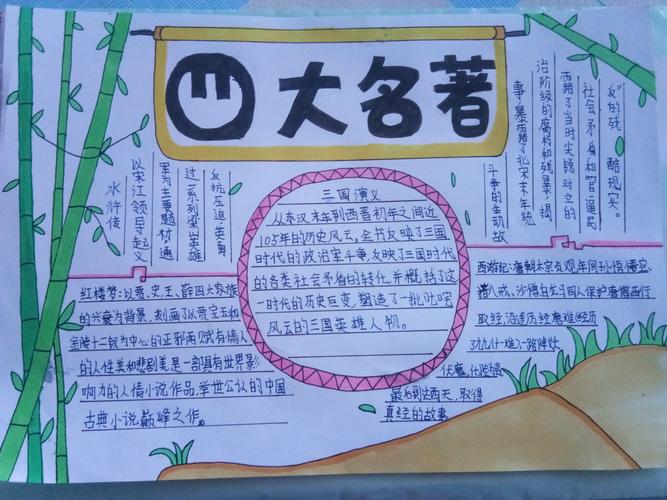 四大名著
水浒传
以宋江领导起义
军为主要题材,通
过一系列梁山英雄
反抗压迫、英勇
斗争的生动故
事,暴露了北宋末年统
治阶级的腐朽和残暴,揭
露了当时尖锐对立的
社会矛盾和“官逼民
反”的残 酷现实。
三国演义
从东汉末年到西晋初年之间近
105年的历史风云,全书反映了三国
时代的政治军斗争反映了三国时代
的各类社会矛盾的转化,并概括了这
一时代的历史巨变,塑造了一批叱咤
风云的三国英雄人物。
红楼梦:以贾、史、王、薛四大家族
的兴衰为背景,刻画了以贾宝玉和
金陵十二钗为中心的正邪两赋有情人
的人性美和悲剧美是一部具有世界影
响力的人情小说作品,举世公认的中国
古典小说巅峰之作。
西游记:唐朝太宗贞观年间孙悟空、
猪八戒、沙僧白龙马四人保护唐僧西行
取经,沿途历经磨难(经历
一路降妖
伏魔,化险
最后到达西天,取得
真经的故事